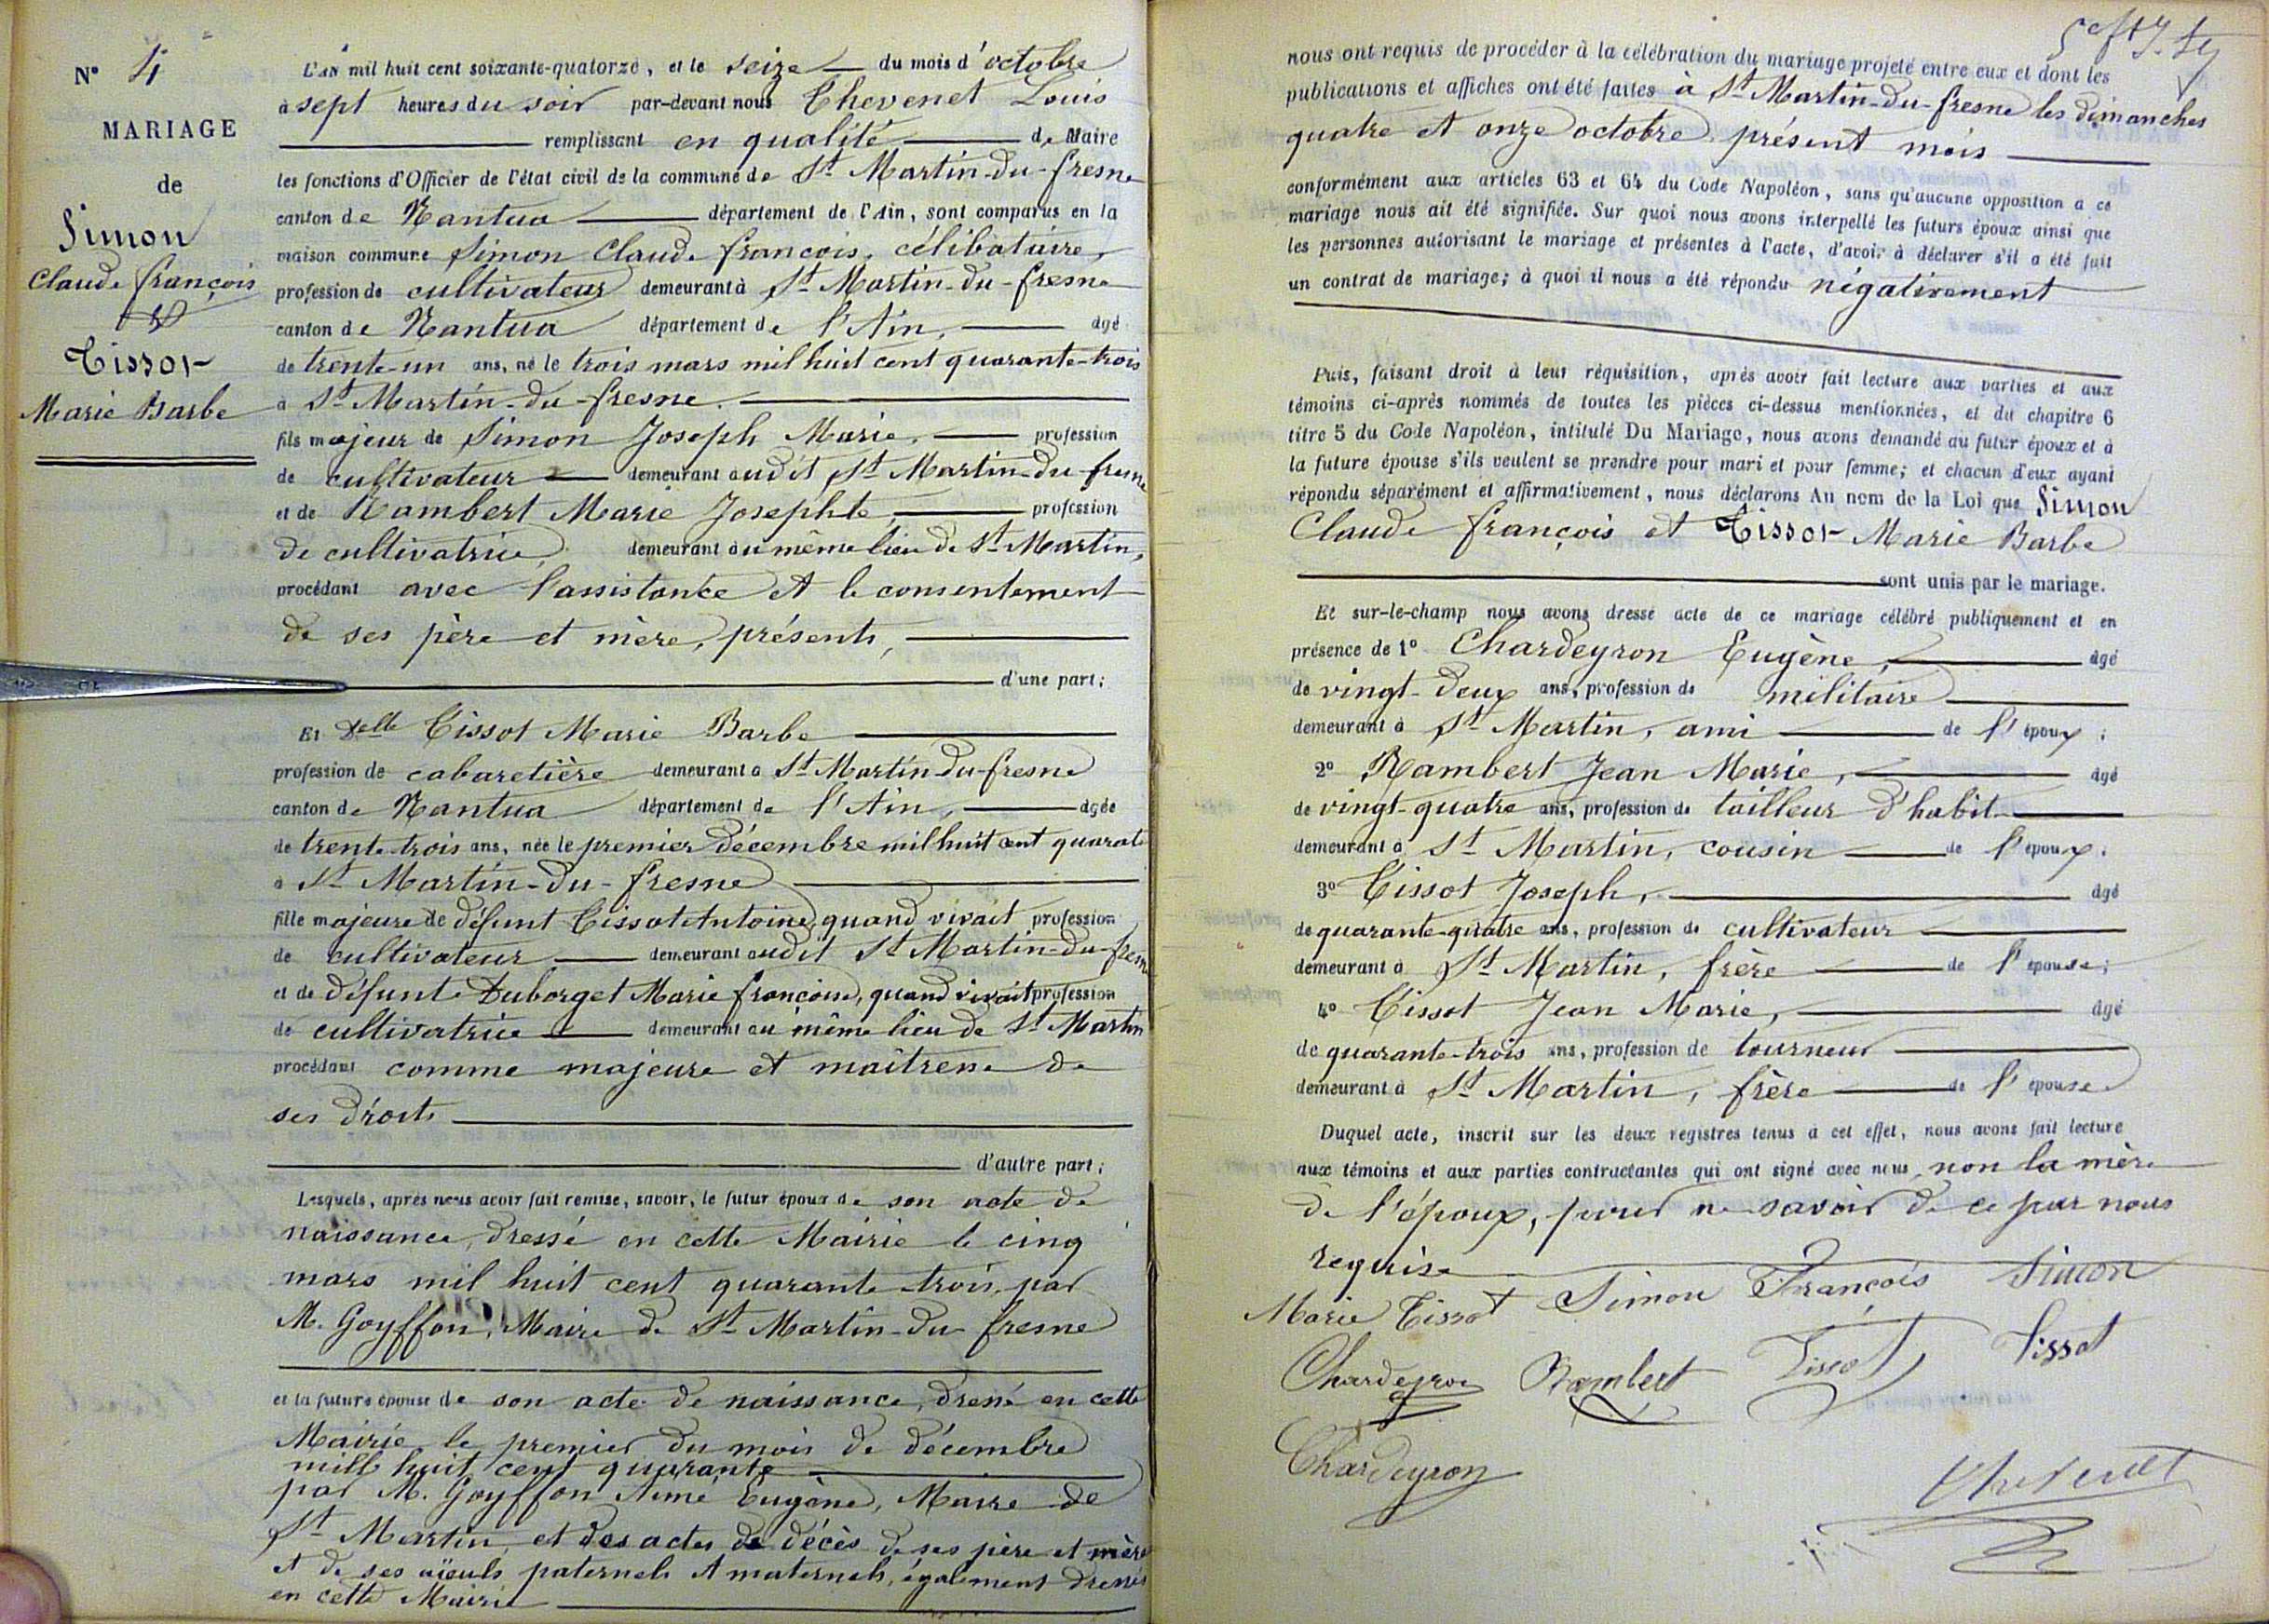 N° 4
MARIAGE
de
Simon
Claude françois
&
Tissot
Marie Barbe
L'AN mil huit cent soixante-quatorze, et le seize du mois d'octobre
à sept heures du soir par-devant nous Chevenet Louis
remplissant en qualité de Maire
les fonctions d'Officier de l'état civil de la commune de St Martin-du-fresne
canton de Nantua département de l'Ain, sont comparus en la
maison commune Simon Claude françois, célibataire,
profession de cultivateur demeurant à St Martin-du-fresne
canton de Nantua département de l'Ain, agé
de trente-un ans, né le trois mars mil huit cent quarante-trois
à St Martin-du-fresne.
fils majeur de Simon Joseph Marie, profession
de cultivateur demeurant audit St Martin-du-fresne
et de Rambert Marie Josephte, profession
de cultivatrice, demeurant au même lieu de St Martin,
procédant avec l'assistance et le consentement
de ses père et mère, présents,
d'une part;
Et Delle Tissot Marie Barbe
profession de cabaretière demeurant à St Martin-du-fresne
canton de Nantua département de l'Ain, agée
de trente-trois ans, née le premier décembre mil huit cent quarante
à St Martin-du-fresne
fille majeure de défunt Tissot Antoine, quand vivait profession
de cultivateur demeurant audit St Martin-du-fresne
et de défunte Duborget Marie françoise, quand vivait profession
de cultivatrice demeurant au même lieu de St Martin
procédant comme majeure et maîtresse de
ses droits
d'autre part;
Lesquels, après nous avoir fait remise, savoir, le futur époux de son acte de
naissance, dressé en cette Mairie le cinq
mars mil huit cent quarante-trois, par
M. Goyffon, Maire de St Martin-du-fresne
et la future épouse de son acte de naissance, dressé en cette
Mairie le premier du mois de décembre
mille huit cent quarante
par M. Goyffon Aimé Eugène, Maire de
St Martin, et des actes de décès de ses père et mère
et de ses aïeuls paternels et maternels, également dressés
en cette Mairie
nous ont requis de procéder à la célébration du mariage projeté entre eux et dont les
publications et affiches ont été faites à St Martin-du-fresne les dimanches
quatre et onze octobre présent mois
conformément aux articles 63 et 64 du Code Napoléon, sans qu'aucune opposition a ce
mariage nous ait été signifiée. Sur quoi nous avons interpellé les futurs époux ainsi que
les personnes autorisant le mariage et présentes à l'acte, d'avoir à déclarer s'il a été fait
un contrat de mariage; à quoi il nous a été répondu négativement
Puis, faisant droit à leur réquisition, après avoir fait lecture aux parties et aux
témoins ci-après nommés de toutes les pièces ci-dessus mentionnées, et du chapitre 6
titre 5 du Code Napoléon, intitulé Du Mariage, nous avons demandé au futur époux et à
la future épouse s'ils veulent se prendre pour mari et pour femme; et chacun d'eux ayant
répondu séparément et affirmativement, nous déclarons Au nom de la Loi que Simon
Claude françois et Tissot Marie Barbe
sont unis par le mariage.
Et sur-le-champ nous avons dressé acte de ce mariage célébré publiquement et en
présence de 1° Chardeyron Eugène, agé
de vingt-deux ans, profession de militaire
demeurant à St Martin, ami de l'époux;
2° Rambert Jean Marie, agé
de vingt-quatre ans, profession de tailleur d'habit
demeurant à St Martin, cousin de l'époux.
3° Tissot Joseph, agé
de quarante-quatre ans, profession de cultivateur
demeurant à St Martin, frère de l'épouse;
4° Tissot Jean Marie, agé
de quarante-trois ans, profession de tourneur
demeurant à St Martin, frère de l'épouse
Duquel acte, inscrit sur les deux registres tenus à cet effet, nous avons fait lecture
aux témoins et aux parties contractantes qui ont signé avec nous, non la mère
de l'époux, pour ne savoir de ce par nous
requise
Marie Tissot Simon François Simon
Chardeyron Rambert Tissot Tissot
Chardeyron
Chevenet